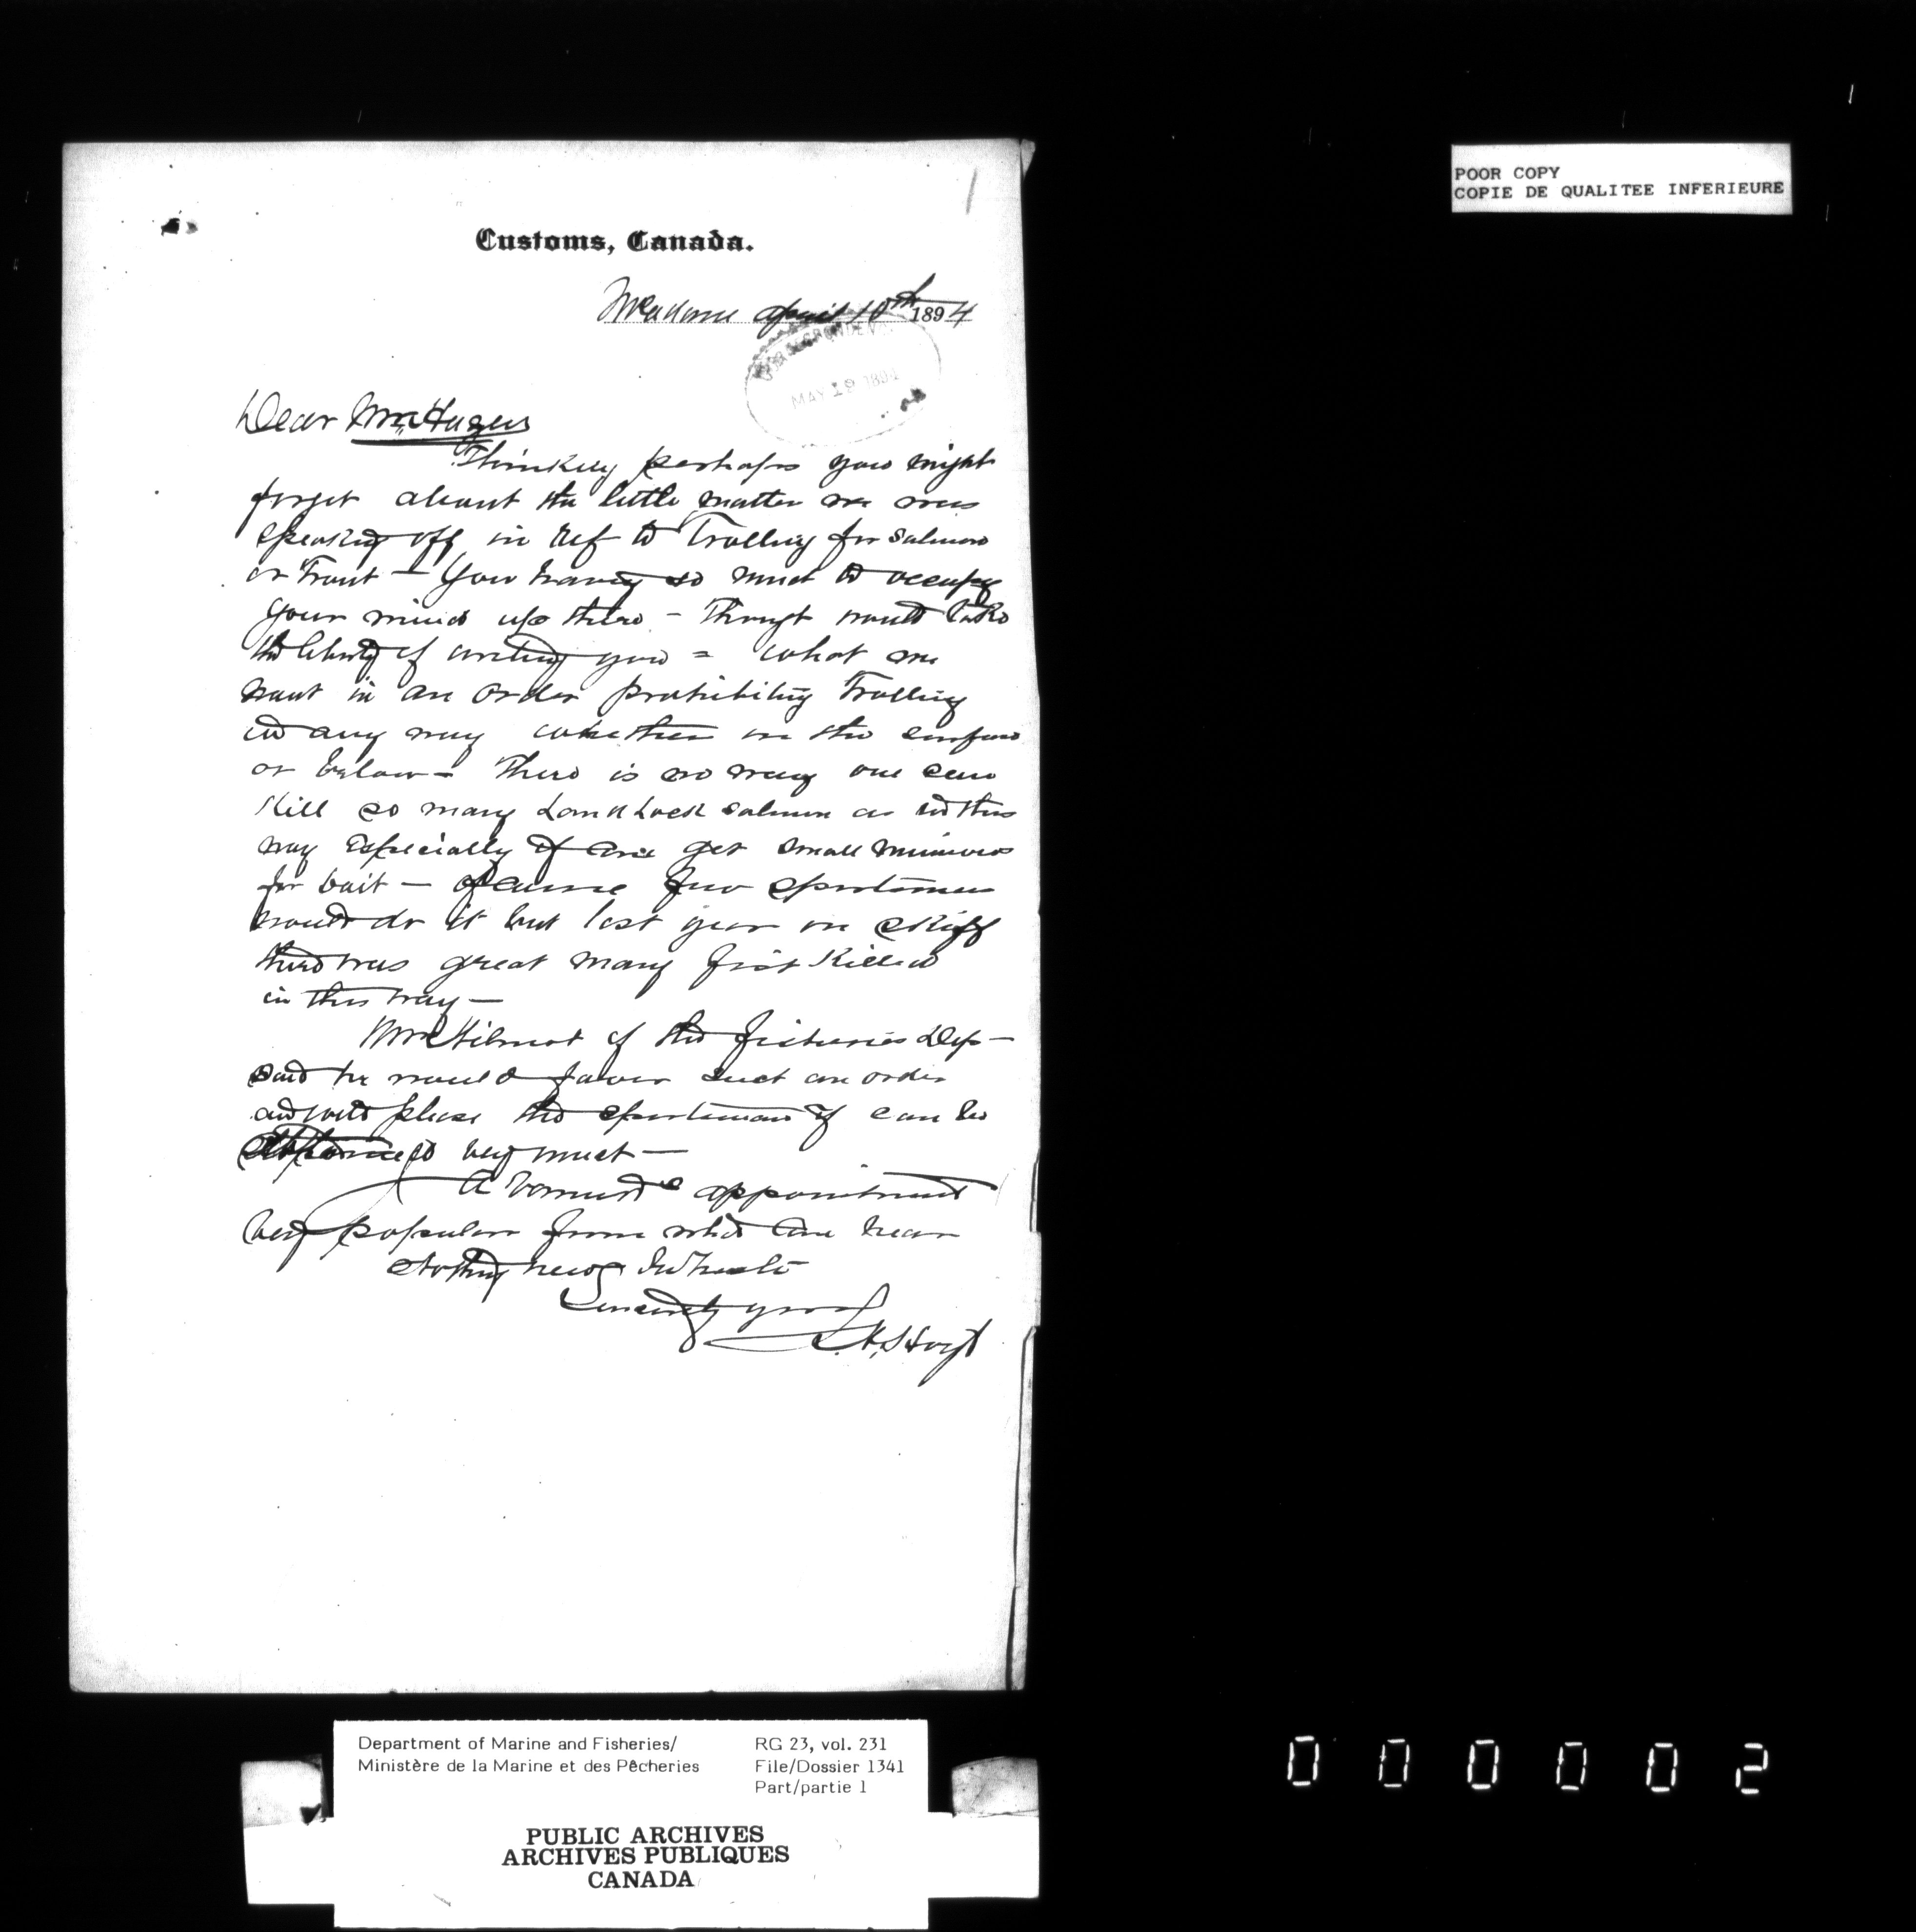 POOR COPY
COPIE DE QUALITEE INFERIEURE
Customs, Canada.
McAdam April 10th 1894
MAY 19 1894
Dear Mr
Thinking perhaps you might
forget about the little matter we was
speaking off in ref to Trolling for Salmon
or Trout — You having so much to occupy
your mind up there — Thought would take
the liberty of writing you = What we
want is an order prohibiting Trolling
in any way whether on the surface
or below — There is no way one can
kill so many Land Lock salmon as in this
way Especially if one get small minnows
for bait — of course few sportsmen
would do it but last year on Skiff
there was great many fish killed
in this way —
Mr Wilmot of the Fisheries Dep —
said he would favor such an order
and would please the sportsmen if can be
very much —
appointment
very popular from what can hear
Nothing new
Sincerely yours
Hoyt
Department of Marine and Fisheries/
Ministère de la Marine et des Pêcheries
RG 23, vol. 231
File/Dossier 1341
Part/partie 1
PUBLIC ARCHIVES
ARCHIVES PUBLIQUES
CANADA
000002